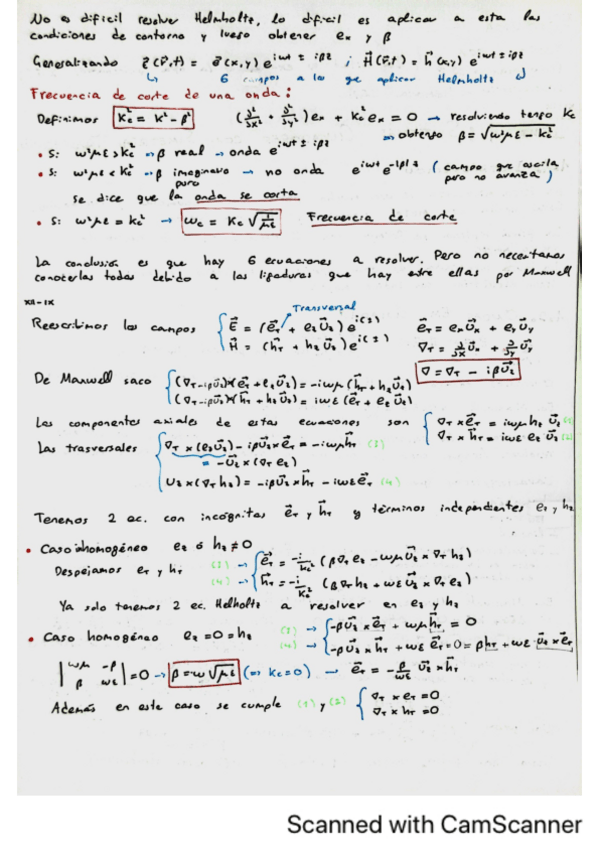 No es dificil resolver Helmholtz, lo dificil es aplicar a esta las
condiciones de contorno y luego obtener ex y β
Generalizando E⃗(r⃗,t) = e⃗(x,y) e^{iωt ± iβz} ; H⃗(r⃗,t) = h⃗(x,y) e^{iωt ± iβz}
↳ 6 campos a los que aplicar Helmholtz
Frecuencia de corte de una onda:
Definimos Kc² = K² - β² (∂²/∂x² + ∂²/∂y²) ex + Kc² ex = 0 → resolviendo tengo Kc
⇒ obtengo β = √(ω²με - Kc²)
• Si ω²με > Kc² → β real → onda e^{iωt ± iβz}
• Si ω²με < Kc² → β imaginario puro → no onda e^{iωt} e^{-|β|z} (campo que oscila pero no avanza)
se dice que la onda se corta
• Si ω²με = Kc² → ωc = Kc √(1/με) Frecuencia de corte
La conclusión es que hay 6 ecuaciones a resolver. Pero no necesitamos
conocerlas todas debido a las ligaduras que hay entre ellas por Maxwell
XII-IX
Transversal
Reescribimos los campos { E⃗ = (e⃗T + ez u⃗z) e^{i( )} e⃗T = ex u⃗x + ey u⃗y
H⃗ = (h⃗T + hz u⃗z) e^{i( )} ∇T = ∂/∂x u⃗x + ∂/∂y u⃗y
∇ = ∇T - iβu⃗z
De Maxwell saco { (∇T - iβu⃗z)×(e⃗T + ez u⃗z) = -iωμ (h⃗T + hz u⃗z)
(∇T - iβu⃗z)×(h⃗T + hz u⃗z) = iωε (e⃗T + ez u⃗z)
Las componentes axiales de estas ecuaciones son { ∇T × e⃗T = iωμ hz u⃗z (1)
∇T × h⃗T = iωε ez u⃗z (2)
Las trasversales { ∇T × (ez u⃗z) - iβu⃗z × e⃗T = -iωμ h⃗T (3)
= -u⃗z × (∇T ez)
Uz × (∇T hz) = -iβu⃗z × h⃗T - iωε e⃗T (4)
Tenemos 2 ec. con incógnitas e⃗T y h⃗T y términos independientes ez y hz
• Caso inhomogéneo ez ó hz ≠ 0
Despejamos eT y hT (3) → { e⃗T = -i/Kc² (β∇T ez - ωμ u⃗z × ∇T hz)
(4) → h⃗T = -i/Kc² (β∇T hz + ωε u⃗z × ∇T ez)
Ya solo tenemos 2 ec. Helholtz a resolver en ez y hz
• Caso homogéneo ez = 0 = hz (3) → { -βu⃗z × e⃗T + ωμ h⃗T = 0
(4) → -βu⃗z × h⃗T + ωε e⃗T = 0 = β h⃗T + ωε u⃗z × e⃗T
| ωμ -β | β ωε | = 0 → β = ω√με (⇒ Kc = 0) → e⃗T = -β/ωε u⃗z × h⃗T
Además en este caso se cumple (1) y (2) { ∇T × eT = 0
∇T × hT = 0
Scanned with CamScanner